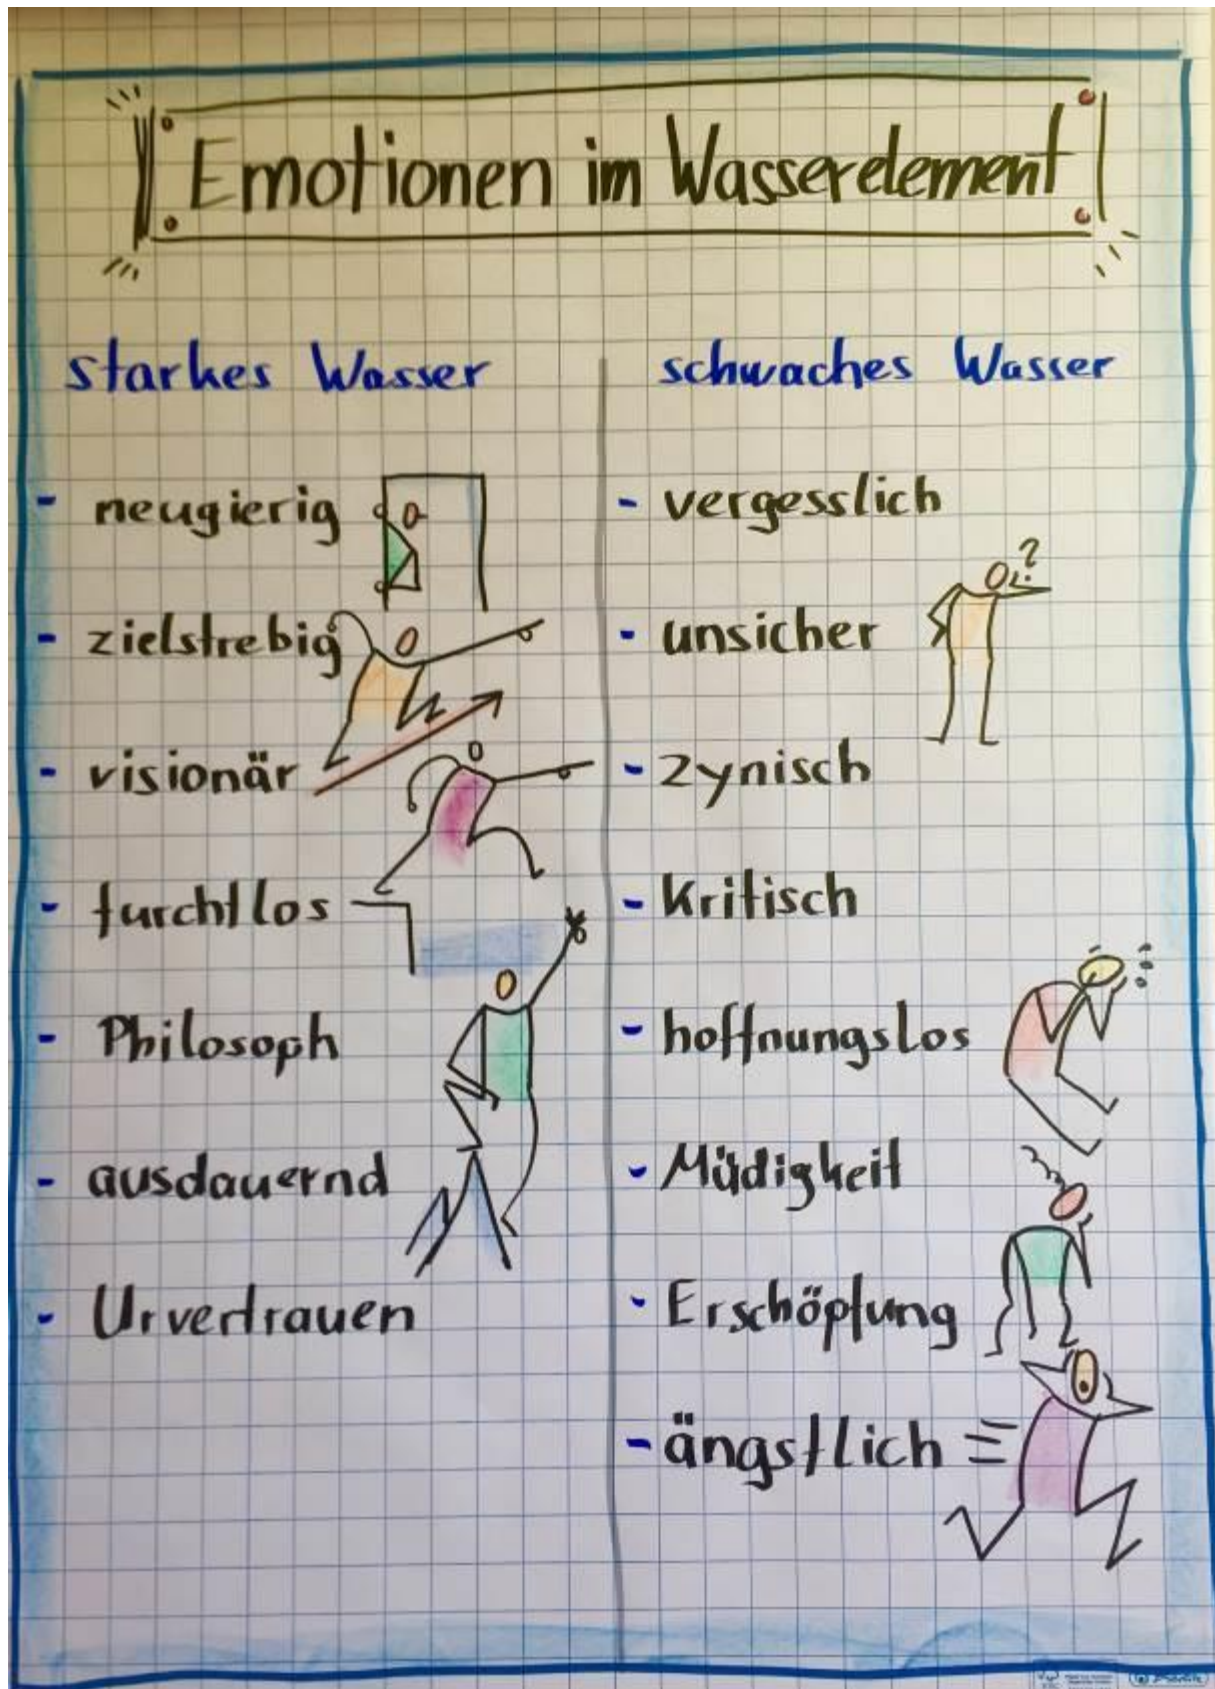 Emotionen im Wasserelement
starkes Wasser
- neugierig
- zielstrebig
- visionär
- furchtlos
- Philosoph
- ausdauernd
- Urvertrauen
schwaches Wasser
- vergesslich
- unsicher
?
- zynisch
- Kritisch
- hoffnungslos
- Müdigkeit
- Erschöpfung
- ängstlich